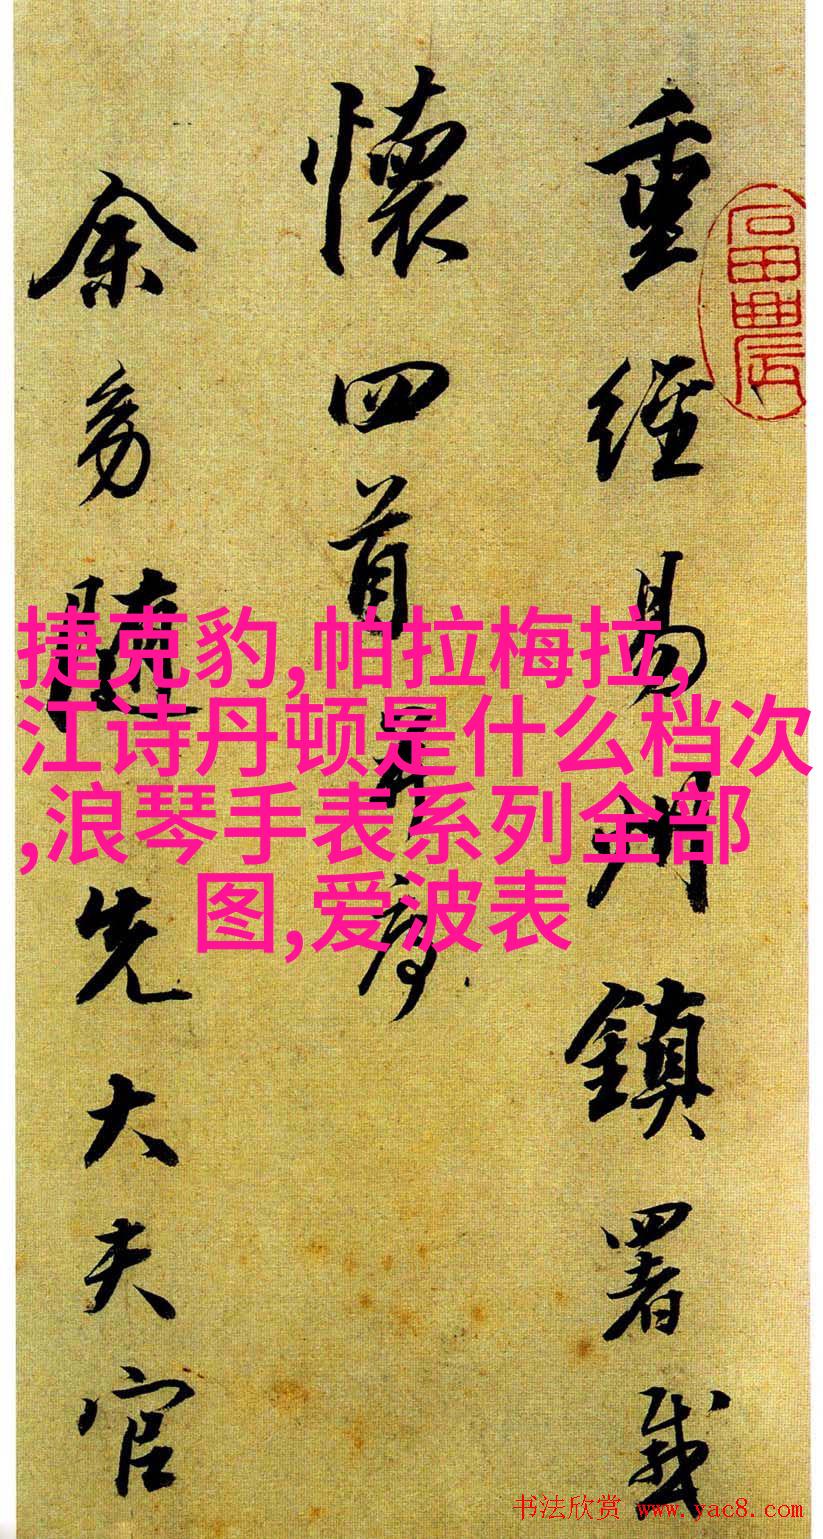 重經易州鎮署感
懷四首并序
余幼隨先大夫官
捷克豹,帕拉梅拉,
江诗丹顿是什么档次
,浪琴手表系列全部
图,爱波表
书法欣赏 www.yac8.com